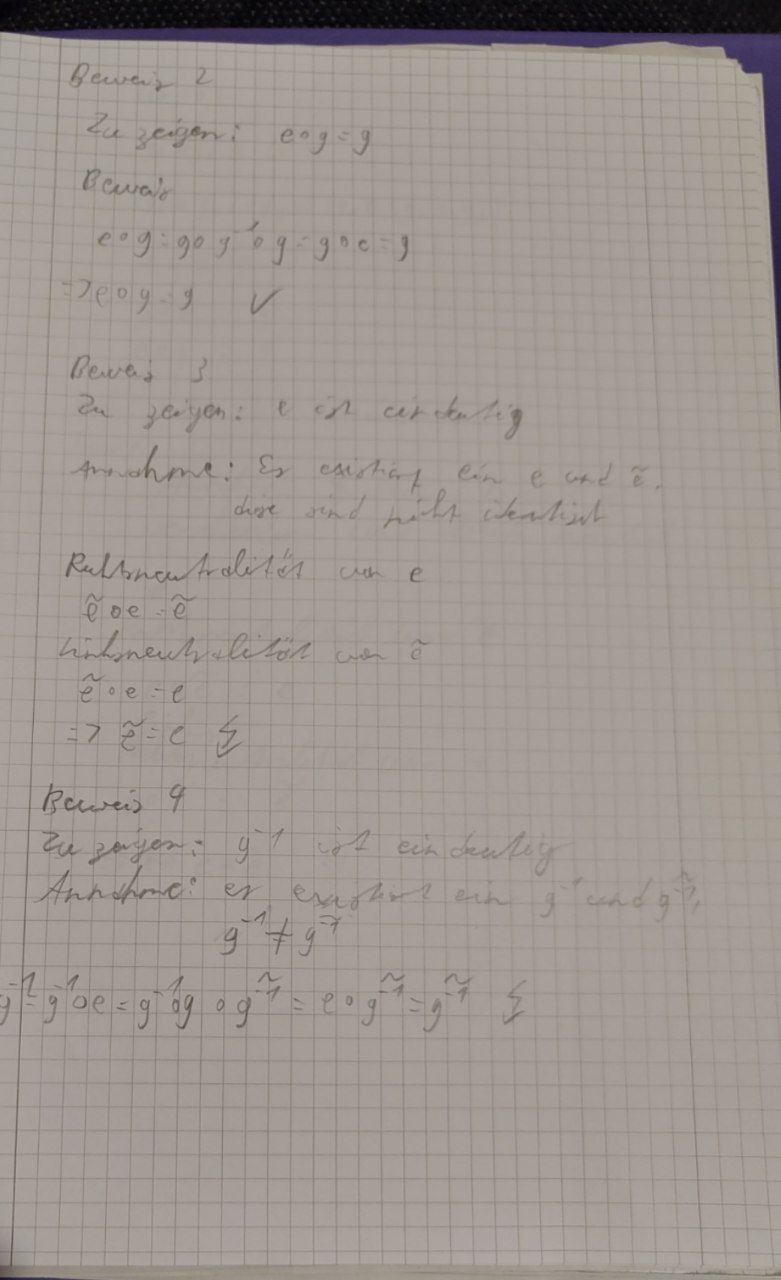 Beweis 2
Zu zeigen: e∘g=g
Beweis
e∘g=g∘g⁻¹∘g=g∘e=g
=>e∘g=g ✓
Beweis 3
Zu zeigen: e ist eindeutig
Annahme: Es existiert ein e und ẽ,
diese sind nicht identisch
Rechtsneutralität von e
ẽ∘e=ẽ
Linksneutralität von ẽ
ẽ∘e=e
=> ẽ=e ↯
Beweis 4
Zu zeigen: g⁻¹ ist eindeutig
Annahme: es existiert ein g⁻¹ und g^~⁻¹,
g⁻¹ ≠ g^~⁻¹
g⁻¹=g⁻¹∘e=g⁻¹∘g∘g^~⁻¹=e∘g^~⁻¹=g^~⁻¹ ↯